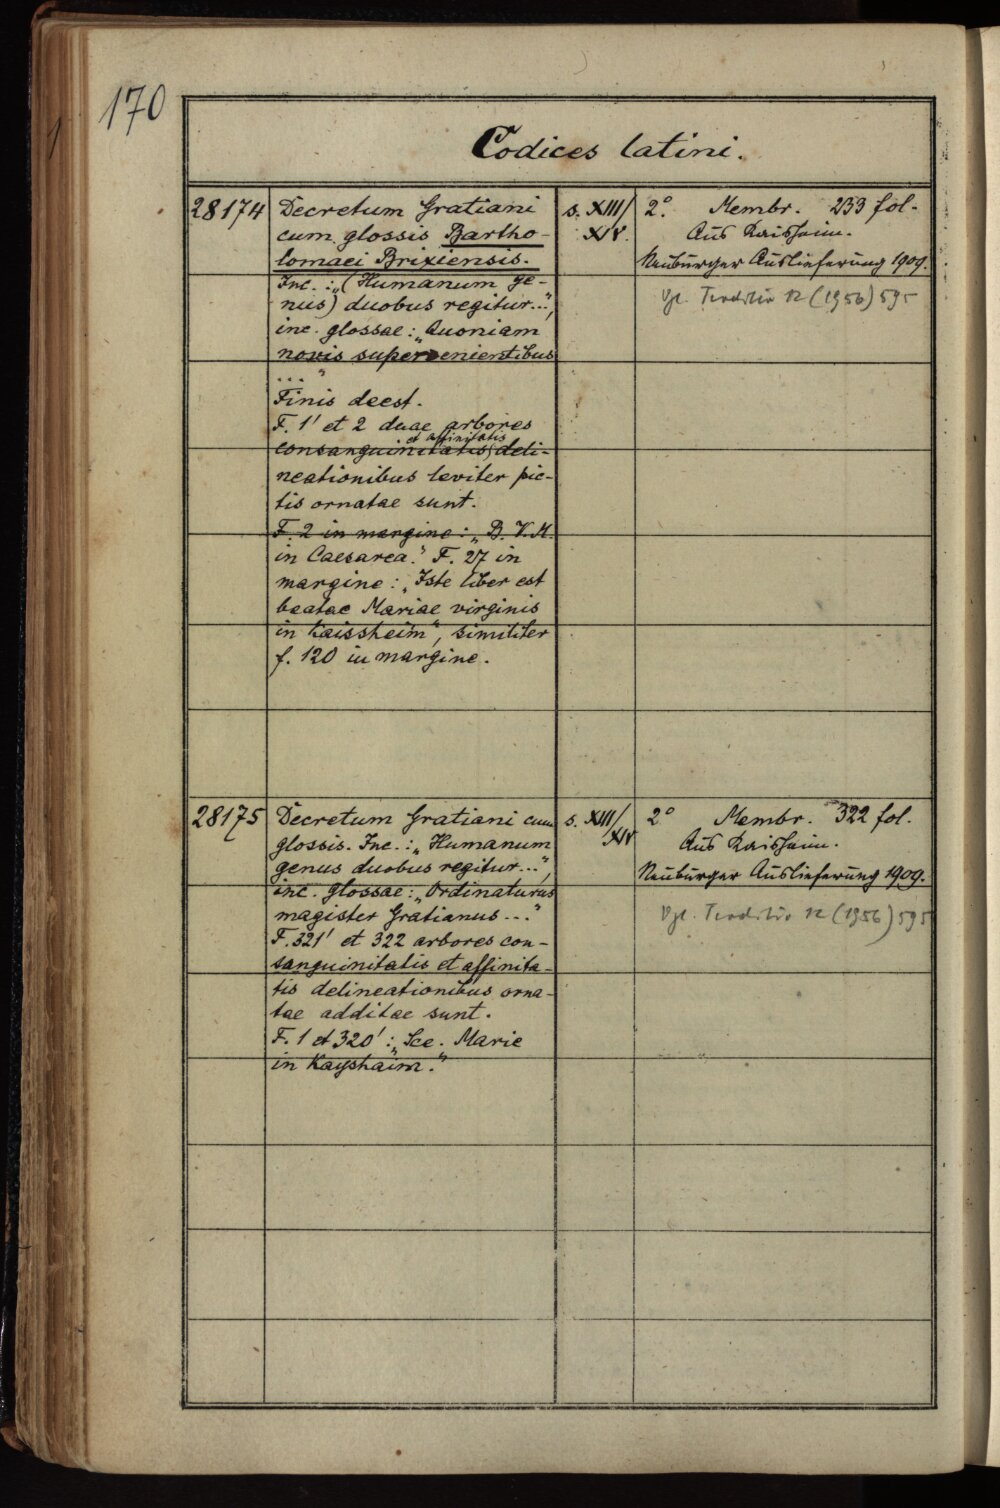 170
Codices latini.
28174
Decretum Gratiani
cum glossis Bartho-
lomaei Brixiensis.
Inc.: „(Humanum ge-
nus) duobus regitur...",
inc. glossae: „Quoniam
novis supervenientibus
..."
Finis deest.
F. 1' et 2 duae arbores
et affinitatis
consanguinitatis deli-
neationibus leviter pic-
tis ornatae sunt.
F. 2 in margine: „B. V. M.
in Caesarea." F. 27 in
margine: „Iste liber est
beatae Mariae virginis
in Kaissheim", similiter
f. 120 in margine.
s. XIII/
XIV.
2°. Membr. 233 fol.
Aus Kaisheim.
Neuburger Auslieferung 1909.
Vgl. Traditio 12 (1956) 595
28175
Decretum Gratiani cum
glossis. Inc.: „Humanum
genus duobus regitur...",
inc. glossae: „Ordinaturus
magister Gratianus..."
F. 321' et 322 arbores con-
sanguinitatis et affinita-
tis delineationibus orna-
tae additae sunt.
F. 1 et 320': „Sce. Marie
in Kayshaim."
s. XIII/
XIV
2° Membr. 322 fol.
Aus Kaisheim.
Neuburger Auslieferung 1909.
Vgl. Traditio 12 (1956) 595